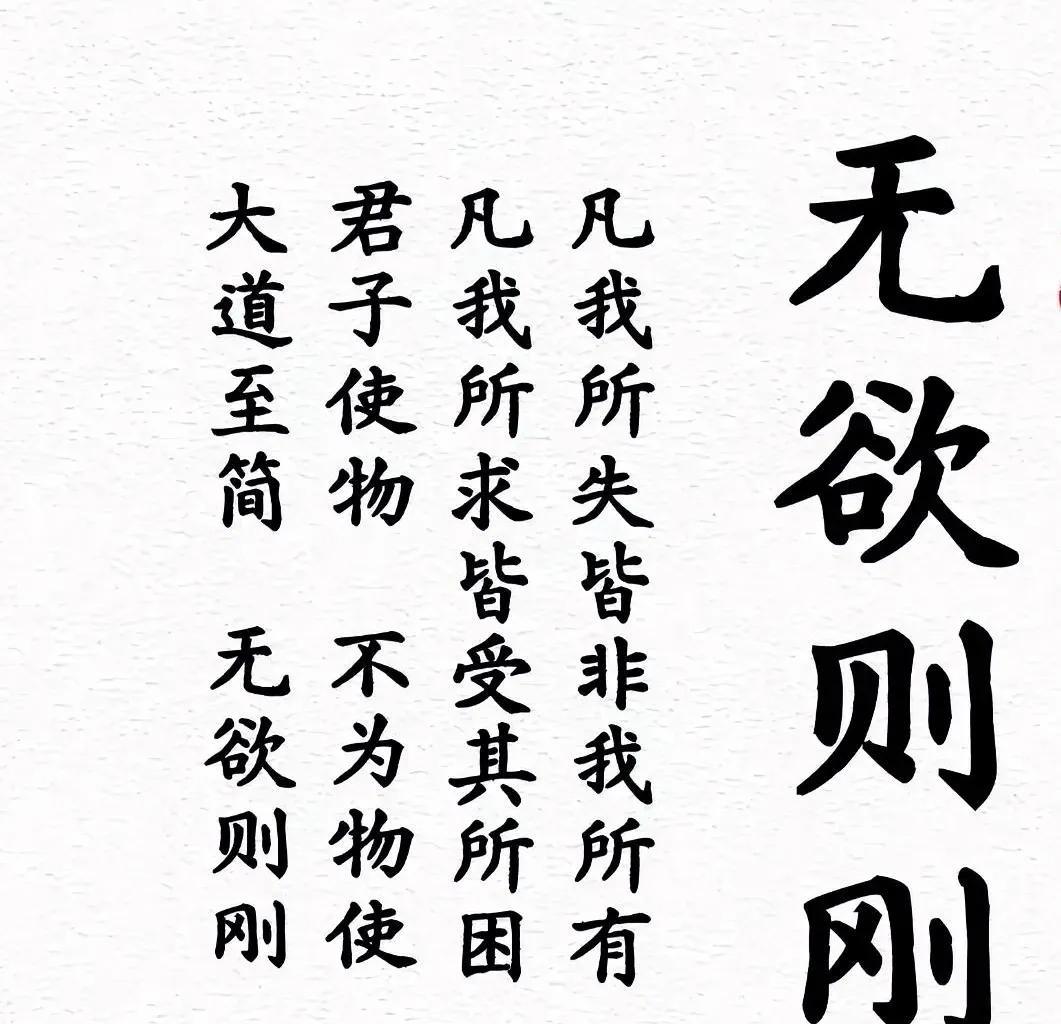 无欲则刚
凡我所失皆非我所有
凡我所求皆受其所困
君子使物 不为物使
大道至简 无欲则刚